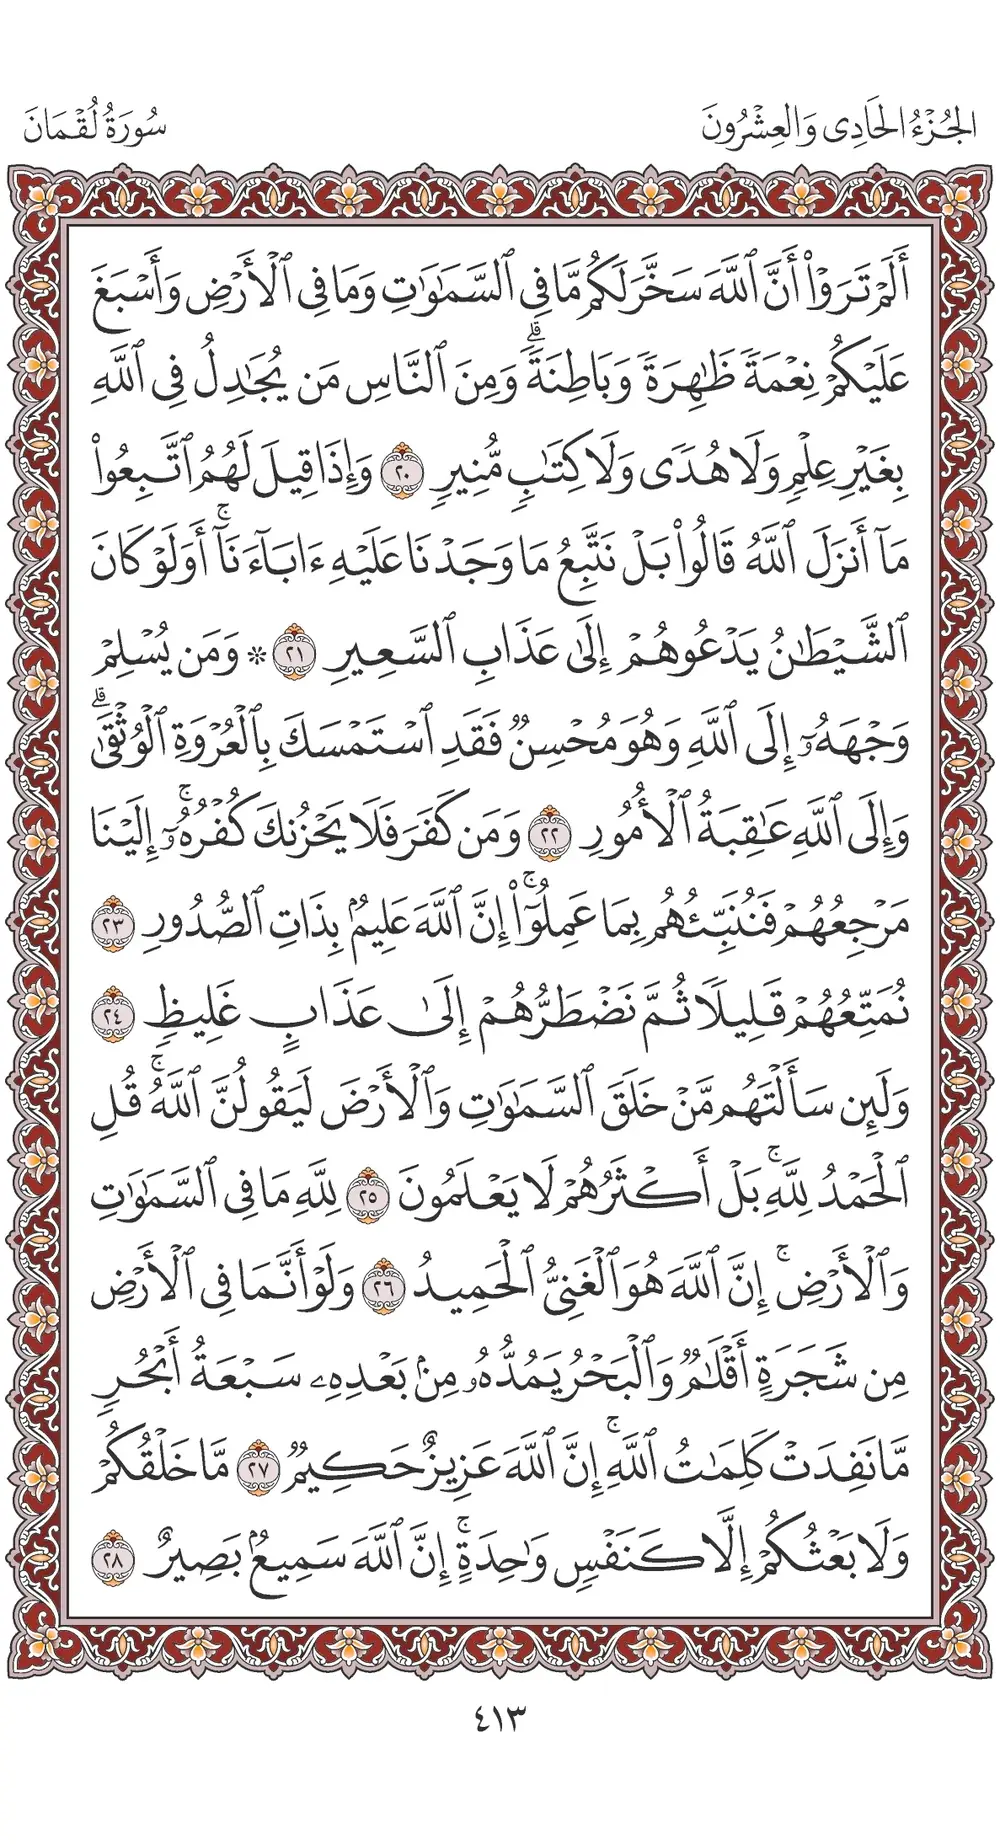 الجُزْءُ الحَادِي وَالعِشْرُونَ
سُورَةُ لُقْمَانَ
أَلَمْ تَرَوْا۟ أَنَّ ٱللَّهَ سَخَّرَ لَكُم مَّا فِى ٱلسَّمَـٰوَٰتِ وَمَا فِى ٱلْأَرْضِ وَأَسْبَغَ
عَلَيْكُمْ نِعْمَهُۥ ظَـٰهِرَةً وَبَاطِنَةً ۗ وَمِنَ ٱلنَّاسِ مَن يُجَـٰدِلُ فِى ٱللَّهِ
بِغَيْرِ عِلْمٍ وَلَا هُدًى وَلَا كِتَـٰبٍ مُّنِيرٍ ٢٠ وَإِذَا قِيلَ لَهُمُ ٱتَّبِعُوا۟
مَآ أَنزَلَ ٱللَّهُ قَالُوا۟ بَلْ نَتَّبِعُ مَا وَجَدْنَا عَلَيْهِ ءَابَآءَنَآ ۚ أَوَلَوْ كَانَ
ٱلشَّيْطَـٰنُ يَدْعُوهُمْ إِلَىٰ عَذَابِ ٱلسَّعِيرِ ٢١ * وَمَن يُسْلِمْ
وَجْهَهُۥٓ إِلَى ٱللَّهِ وَهُوَ مُحْسِنٌ فَقَدِ ٱسْتَمْسَكَ بِٱلْعُرْوَةِ ٱلْوُثْقَىٰ ۗ
وَإِلَى ٱللَّهِ عَـٰقِبَةُ ٱلْأُمُورِ ٢٢ وَمَن كَفَرَ فَلَا يَحْزُنكَ كُفْرُهُۥٓ ۚ إِلَيْنَا
مَرْجِعُهُمْ فَنُنَبِّئُهُم بِمَا عَمِلُوٓا۟ ۚ إِنَّ ٱللَّهَ عَلِيمٌۢ بِذَاتِ ٱلصُّدُورِ ٢٣
نُمَتِّعُهُمْ قَلِيلًا ثُمَّ نَضْطَرُّهُمْ إِلَىٰ عَذَابٍ غَلِيظٍ ٢٤
وَلَئِن سَأَلْتَهُم مَّنْ خَلَقَ ٱلسَّمَـٰوَٰتِ وَٱلْأَرْضَ لَيَقُولُنَّ ٱللَّهُ ۚ قُلِ
ٱلْحَمْدُ لِلَّهِ ۚ بَلْ أَكْثَرُهُمْ لَا يَعْلَمُونَ ٢٥ لِلَّهِ مَا فِى ٱلسَّمَـٰوَٰتِ
وَٱلْأَرْضِ ۚ إِنَّ ٱللَّهَ هُوَ ٱلْغَنِىُّ ٱلْحَمِيدُ ٢٦ وَلَوْ أَنَّمَا فِى ٱلْأَرْضِ
مِن شَجَرَةٍ أَقْلَـٰمٌ وَٱلْبَحْرُ يَمُدُّهُۥ مِنۢ بَعْدِهِۦ سَبْعَةُ أَبْحُرٍ
مَّا نَفِدَتْ كَلِمَـٰتُ ٱللَّهِ ۗ إِنَّ ٱللَّهَ عَزِيزٌ حَكِيمٌ ٢٧ مَّا خَلْقُكُمْ
وَلَا بَعْثُكُمْ إِلَّا كَنَفْسٍ وَٰحِدَةٍ ۗ إِنَّ ٱللَّهَ سَمِيعٌۢ بَصِيرٌ ٢٨
٤١٣